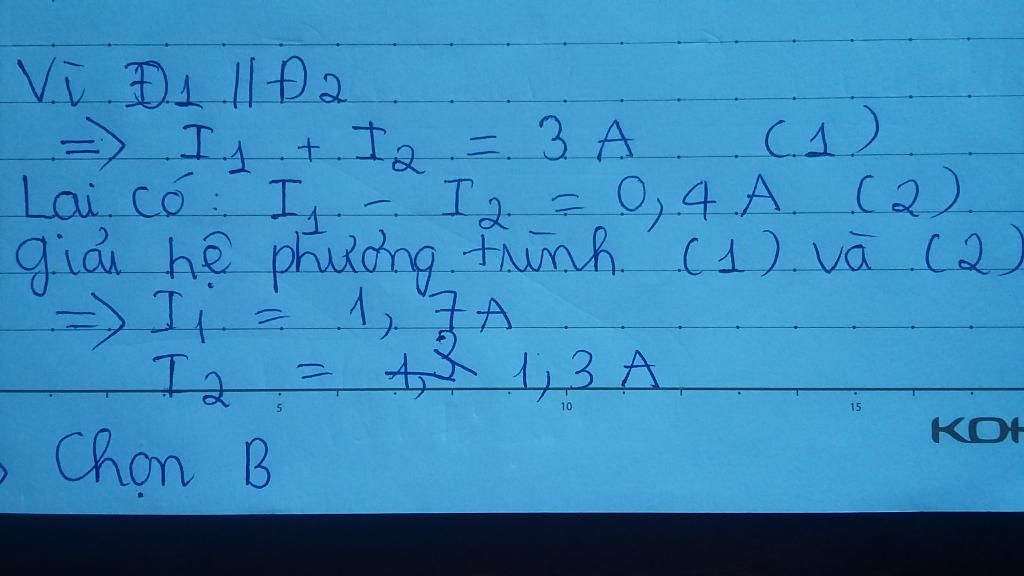 Vì Đ1 // Đ2
=> I1 + I2 = 3 A (1)
Lại có: I1 - I2 = 0,4 A (2)
giải hệ phương trình (1) và (2)
=> I1 = 1,7 A
I2 = 1,3 A
5 10 15
KOH
Chọn B